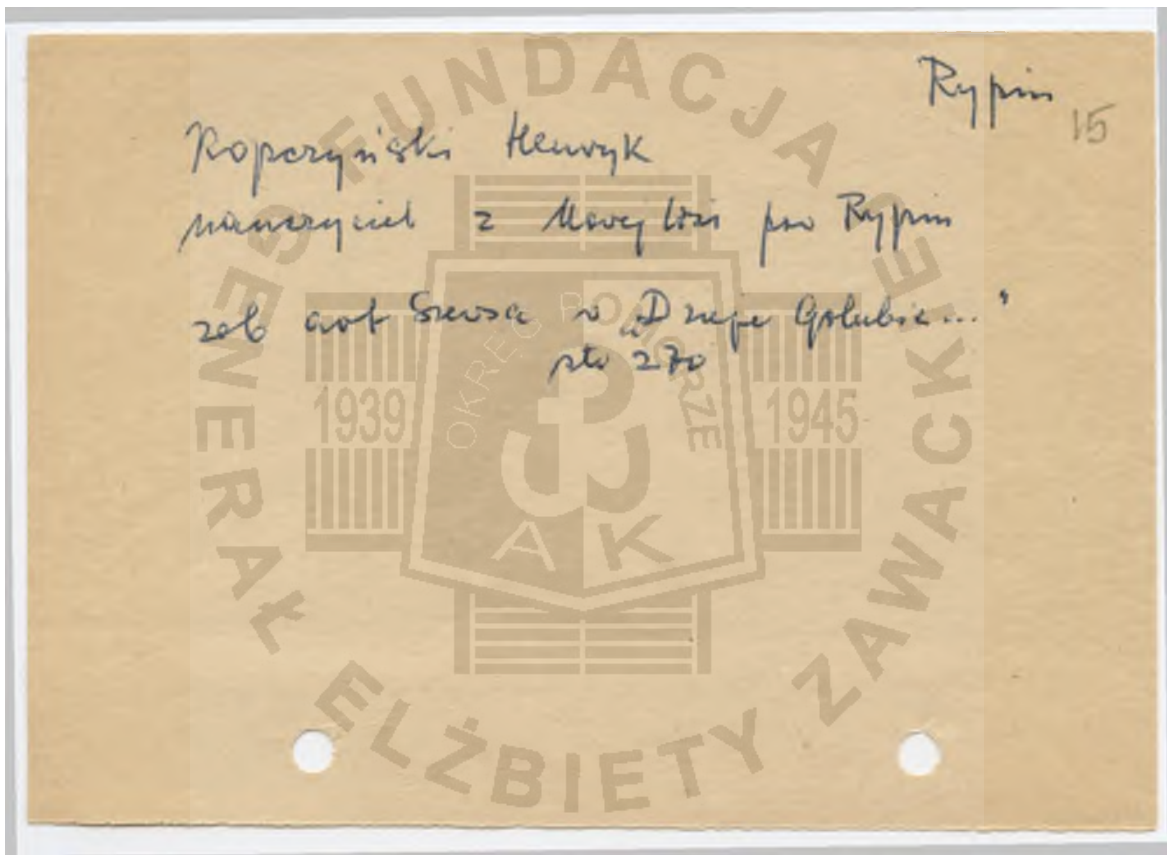 Rypin
15
Kopczyński Henryk
nauczyciel z Nowej Wsi pow Rypin
zob art Szewsa w „Dzieje Golubia..."
str 270
FUNDACJA
GENERAŁ ELŻBIETY ZAWACKIEJ
OKRĘG POMORZE
1939
1945
AK